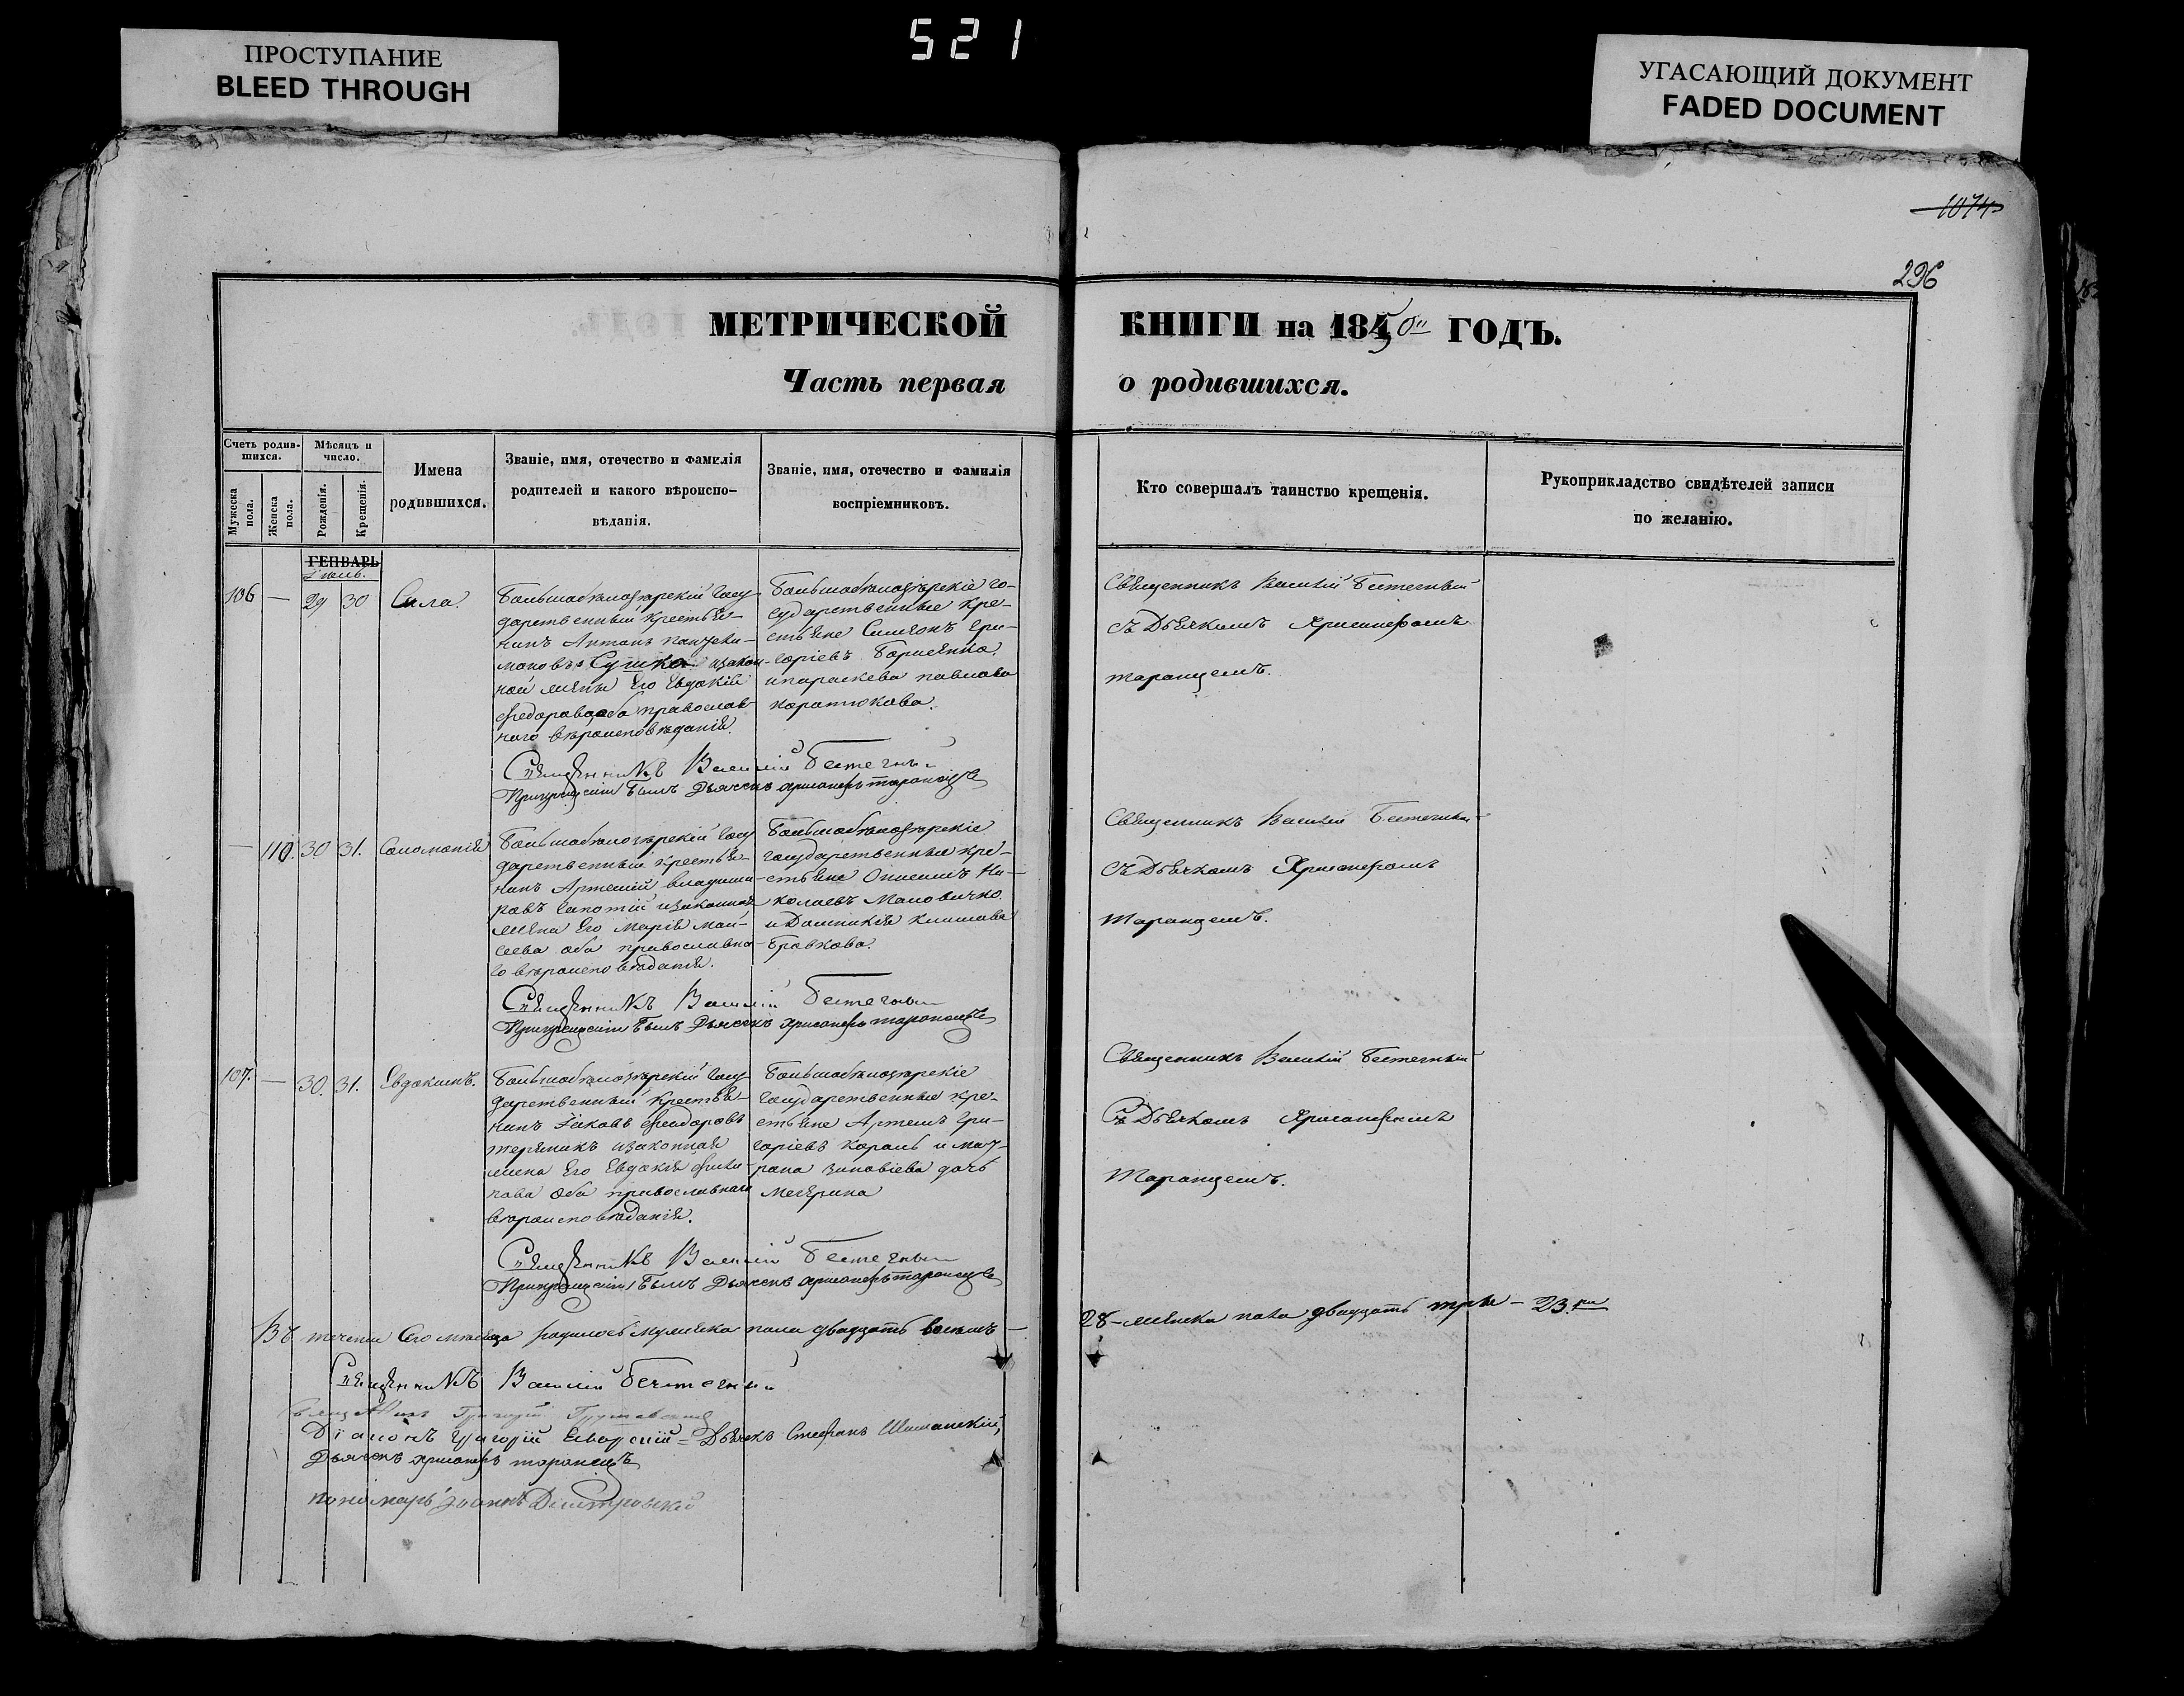 ПРОСТУПАНИЕ
BLEED THROUGH
521
УГАСАЮЩИЙ ДОКУМЕНТ
FADED DOCUMENT
1074
296
МЕТРИЧЕСКОЙ КНИГИ на 1850 ГОДЪ.
Часть первая о родившихся.
Счетъ родив-
шихся.
Мужеска пола.
Женска пола.
Мѣсяцъ и
число.
Рожденія.
Крещенія.
Имена
родившихся.
Званіе, имя, отечество и фамилія
родителей и какого вѣроиспо-
вѣданія.
Званіе, имя, отечество и фамилія
воспріемниковъ.
Кто совершалъ таинство крещенія.
Рукоприкладство свидѣтелей записи
по желанію.
ГЕНВАРЬ
Іюль.
106 — 29 30 Сила.
Большобѣлозѣрскій госу
дарственный крестья-
нинъ Антонъ Пантели-
моновъ Сушко и закон-
ной жены его Евдокіи
Федорова, оба православ-
наго вѣроисповѣданія.
Большобѣлозѣрскіе го-
сударственные кре-
стьяне Симеонъ Гри-
горіевъ
и Параскева Павлова
Коротюкова.
Священникъ Василій
съ Дьячкомъ Хрисанфомъ
Таранцемъ.
Священникъ Василій
При крещеніи былъ Дьячекъ Хрисанфъ Таранецъ
— 110. 30 31. Соломонія
Большобѣлозѣрскій госу
дарственный крестья-
нинъ Артемій Владими-
ровъ и законная
жена его Марія Мои-
сеева оба православна-
го вѣроисповѣданія.
Большобѣлозѣрскіе
государственные кре-
стьяне Ни-
колаевъ Мановичко.
и Домникія Климова
Бровкова.
Священникъ Василій
съ Дьячкомъ Хрисанфомъ
Таранцемъ.
Священникъ Василій
При крещеніи былъ Дьячекъ Хрисанфъ Таранецъ
107. — 30. 31. Евдокимъ.
Большобѣлозѣрскій госу
дарственный крестья-
нинъ Іаковъ Феодоровъ
и законная
жена его Евдокія Фили-
пова оба православнаго
вѣроисповѣданія.
Большобѣлозѣрскіе
государственные кре-
стьяне Артемъ Гри-
горіевъ Король и Мат-
рона Зиновіева дочь
Священникъ Василій
съ Дьячкомъ Хрисанфомъ
Таранцемъ.
Священникъ Василій
При крещеніи былъ Дьячекъ Хрисанфъ Таранецъ
Въ теченіи сего мѣсяца родилось мужеска пола двадцать восемь — 28 — женска пола двадцать три — 23.
Священникъ Василій
Священникъ Григорій
Діаконъ Григорій Дьячекъ Стефанъ Шиманскій,
Дьячекъ Хрисанфъ Таранецъ
Пономарь Іоаннъ Дмитровскій